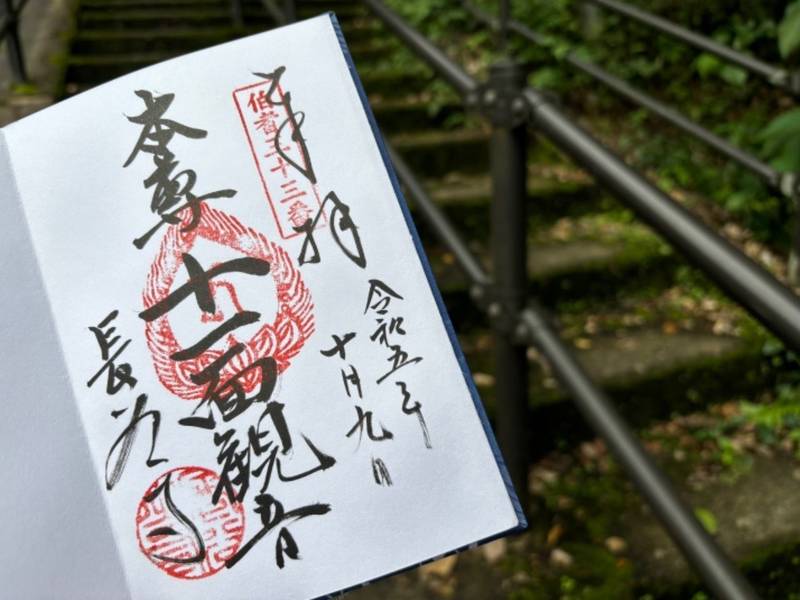 奉拝
伯耆三十三番
令和五年
十月九日
本尊 十一面観音
長谷寺